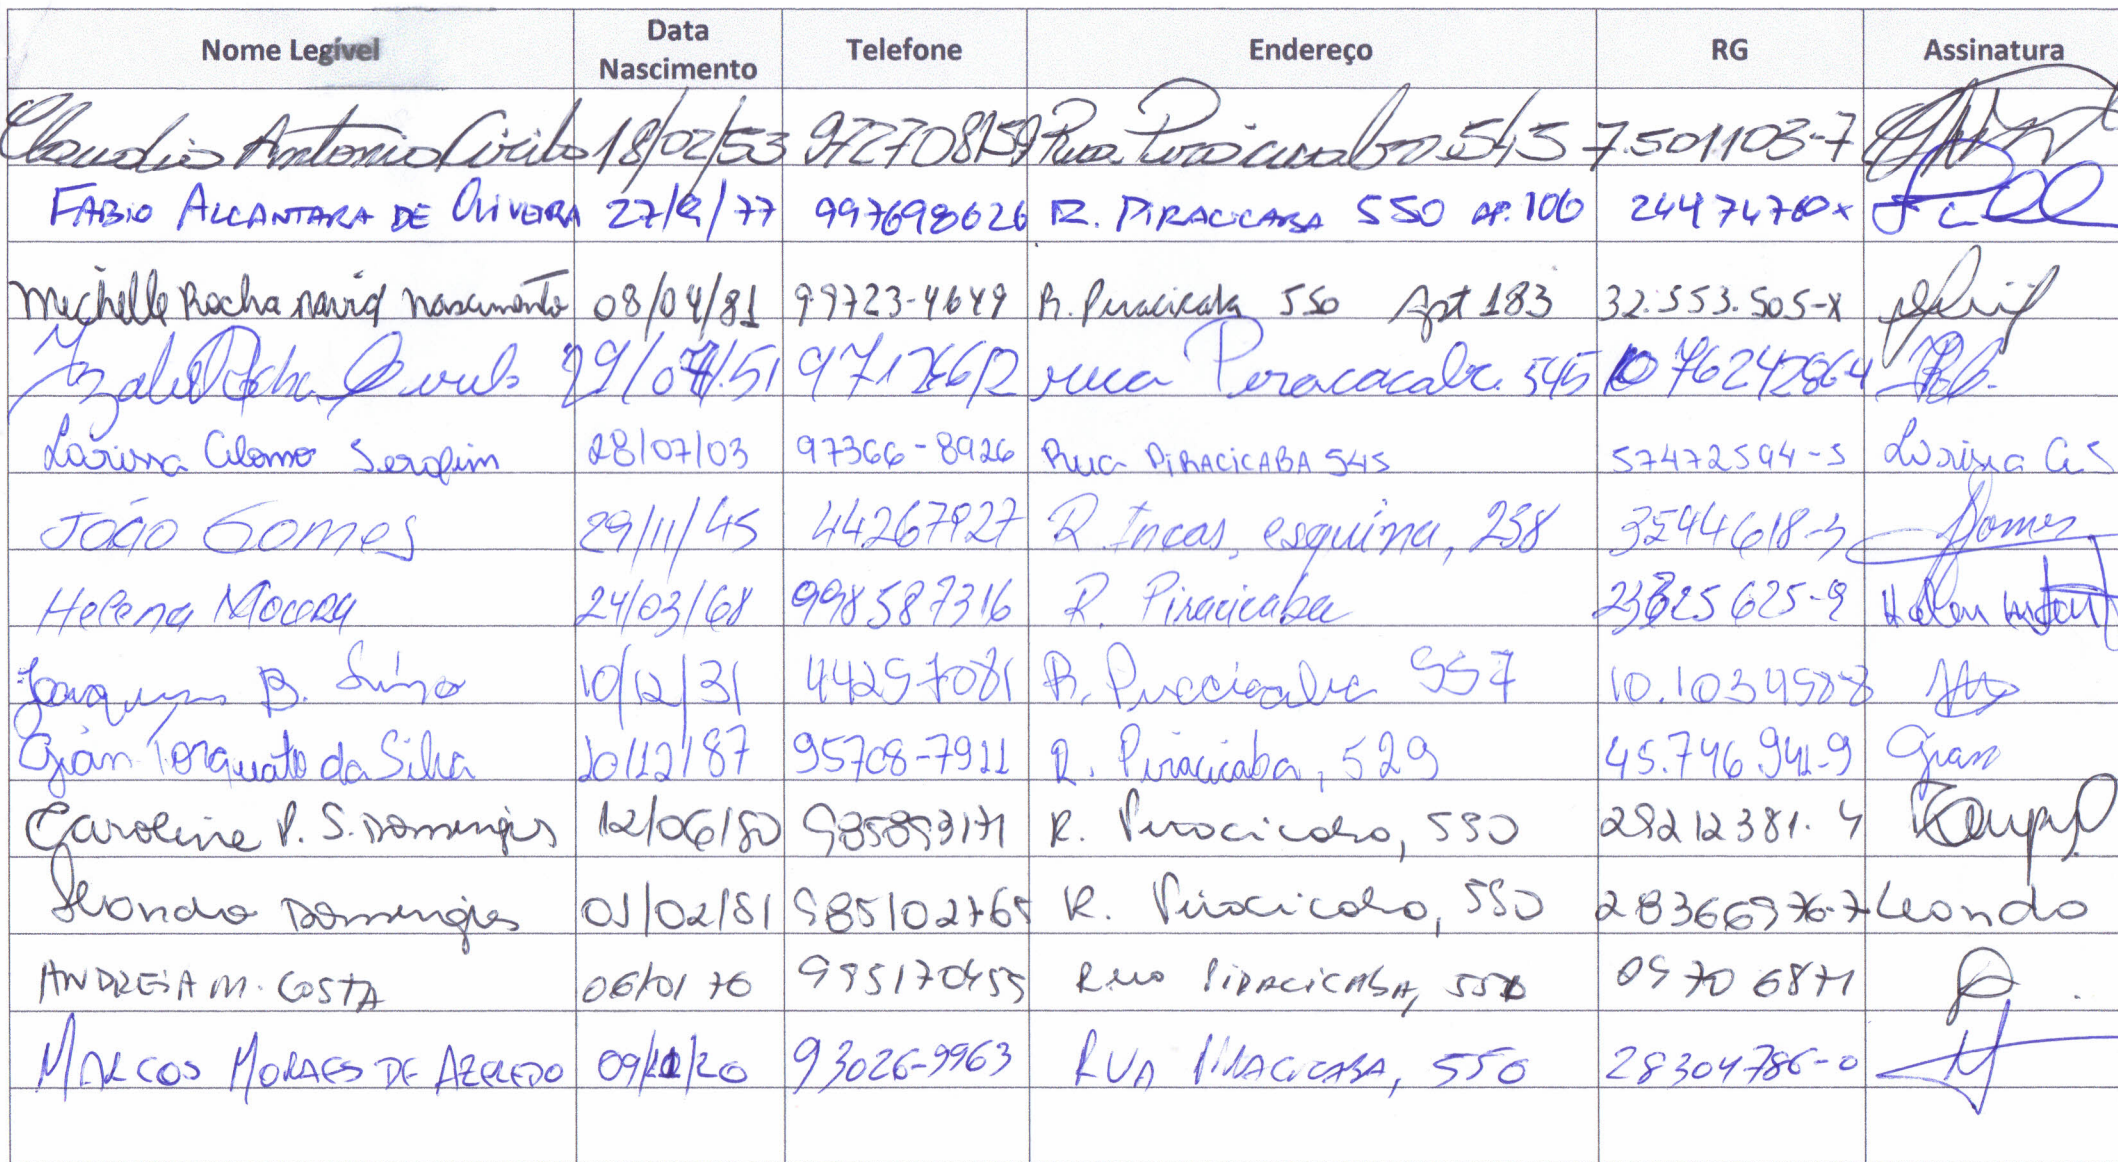 Nome Legível Data Nascimento Telefone Endereço RG Assinatura
Claudio Antonio Cirilo 18/02/53 972708159 Rua Piracicaba 545 7.501103-7
FABIO ALCANTARA DE OLIVEIRA 27/12/77 997698626 R. PIRACICABA 550 AP. 106 24474760x
Michelle Rocha Nascimento 08/04/81 99723-4649 R. Piracicaba 550 Apt 183 32.553.505-X
Rocha 545
Larissa Serafim 28/07/03 97366-8926 Rua PIRACICABA 545 57472594-5 Larissa C.S
João Gomes 29/11/45 44267927 R. Incas, esquina, 258 3594618-5 Gomes
Helena Moura 24/03/68 998587316 R. Piracicaba
B. 10/12/31 44257081 R. Piracicaba 557
Gian Torquato da Silva 20/12/87 95708-7911 R. Piracicaba, 529 45.746.941-9 Gian
Caroline P. S. Domingis 12/06/80 985893171 R. Piracicaba, 550 29212381.4
Domingis 01/02/81 985102765 R. Piracicaba, 550 28366976-7 Leandro
ANDREIA M. COSTA 06/01 76 995170455 Rua PIRACICABA, 550 0970 6871
MARCOS MORAES DE AZEREDO 93026-9963 RUA PIRACICABA, 550 28304786-0